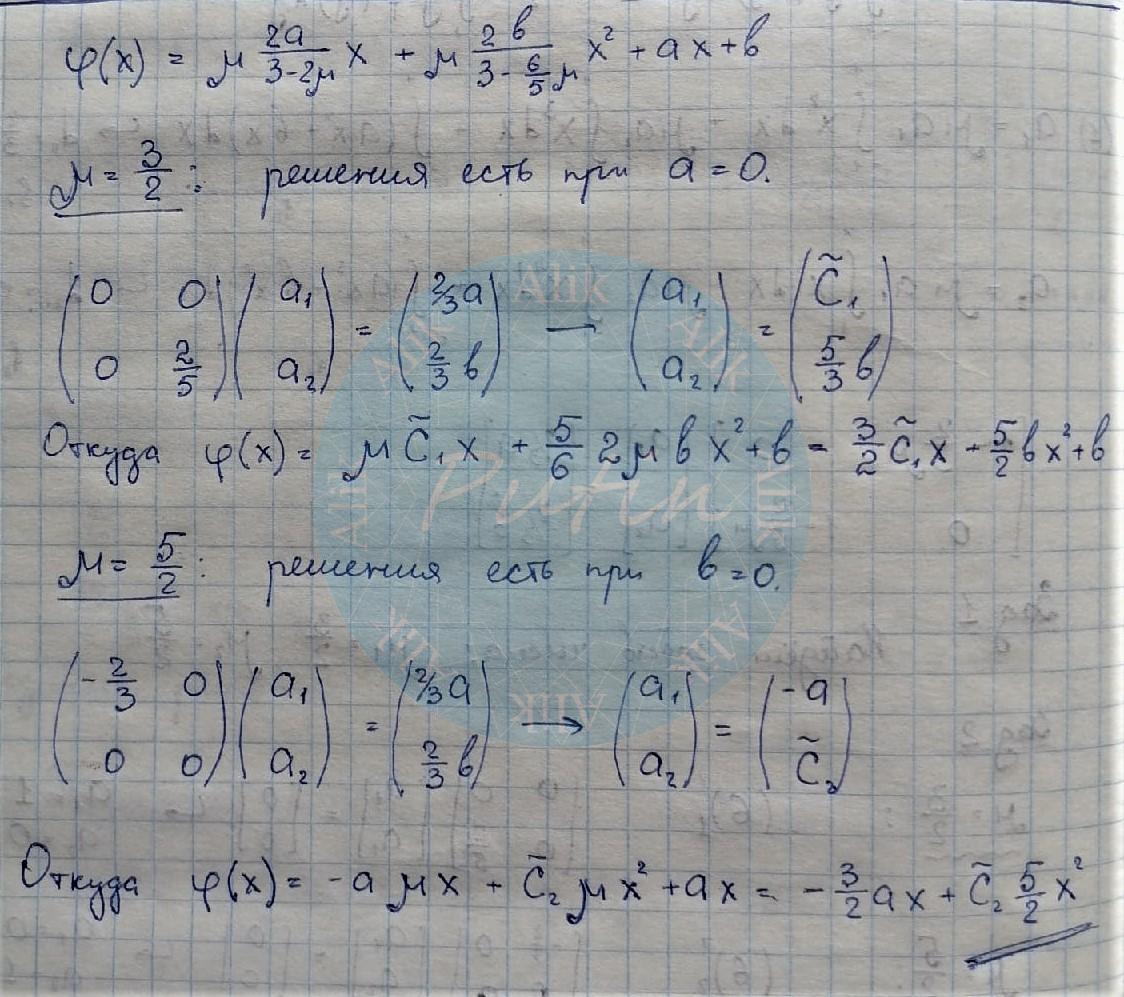 φ(x) = μ 2a/(3-2μ) x + μ 2b/(3 - 6/5 μ) x² + ax + b
μ = 3/2 : решения есть при a = 0.
(0 0; 0 2/5) (a₁; a₂) = (2/3 a; 2/3 b) → (a₁; a₂) = (C̃₁; 5/3 b)
Откуда φ(x) = μ C̃₁ x + 5/6 2μ b x² + b = 3/2 C̃₁ x + 5/2 b x² + b
μ = 5/2 : решения есть при b = 0.
(-2/3 0; 0 0) (a₁; a₂) = (2/3 a; 2/3 b) → (a₁; a₂) = (-a; C̃₂)
Откуда φ(x) = -a μ x + C̃₂ μ x² + ax = -3/2 ax + C̃₂ 5/2 x²
Alik
Alik
Alik
Alik
Alik
Alik
Alik
Alik